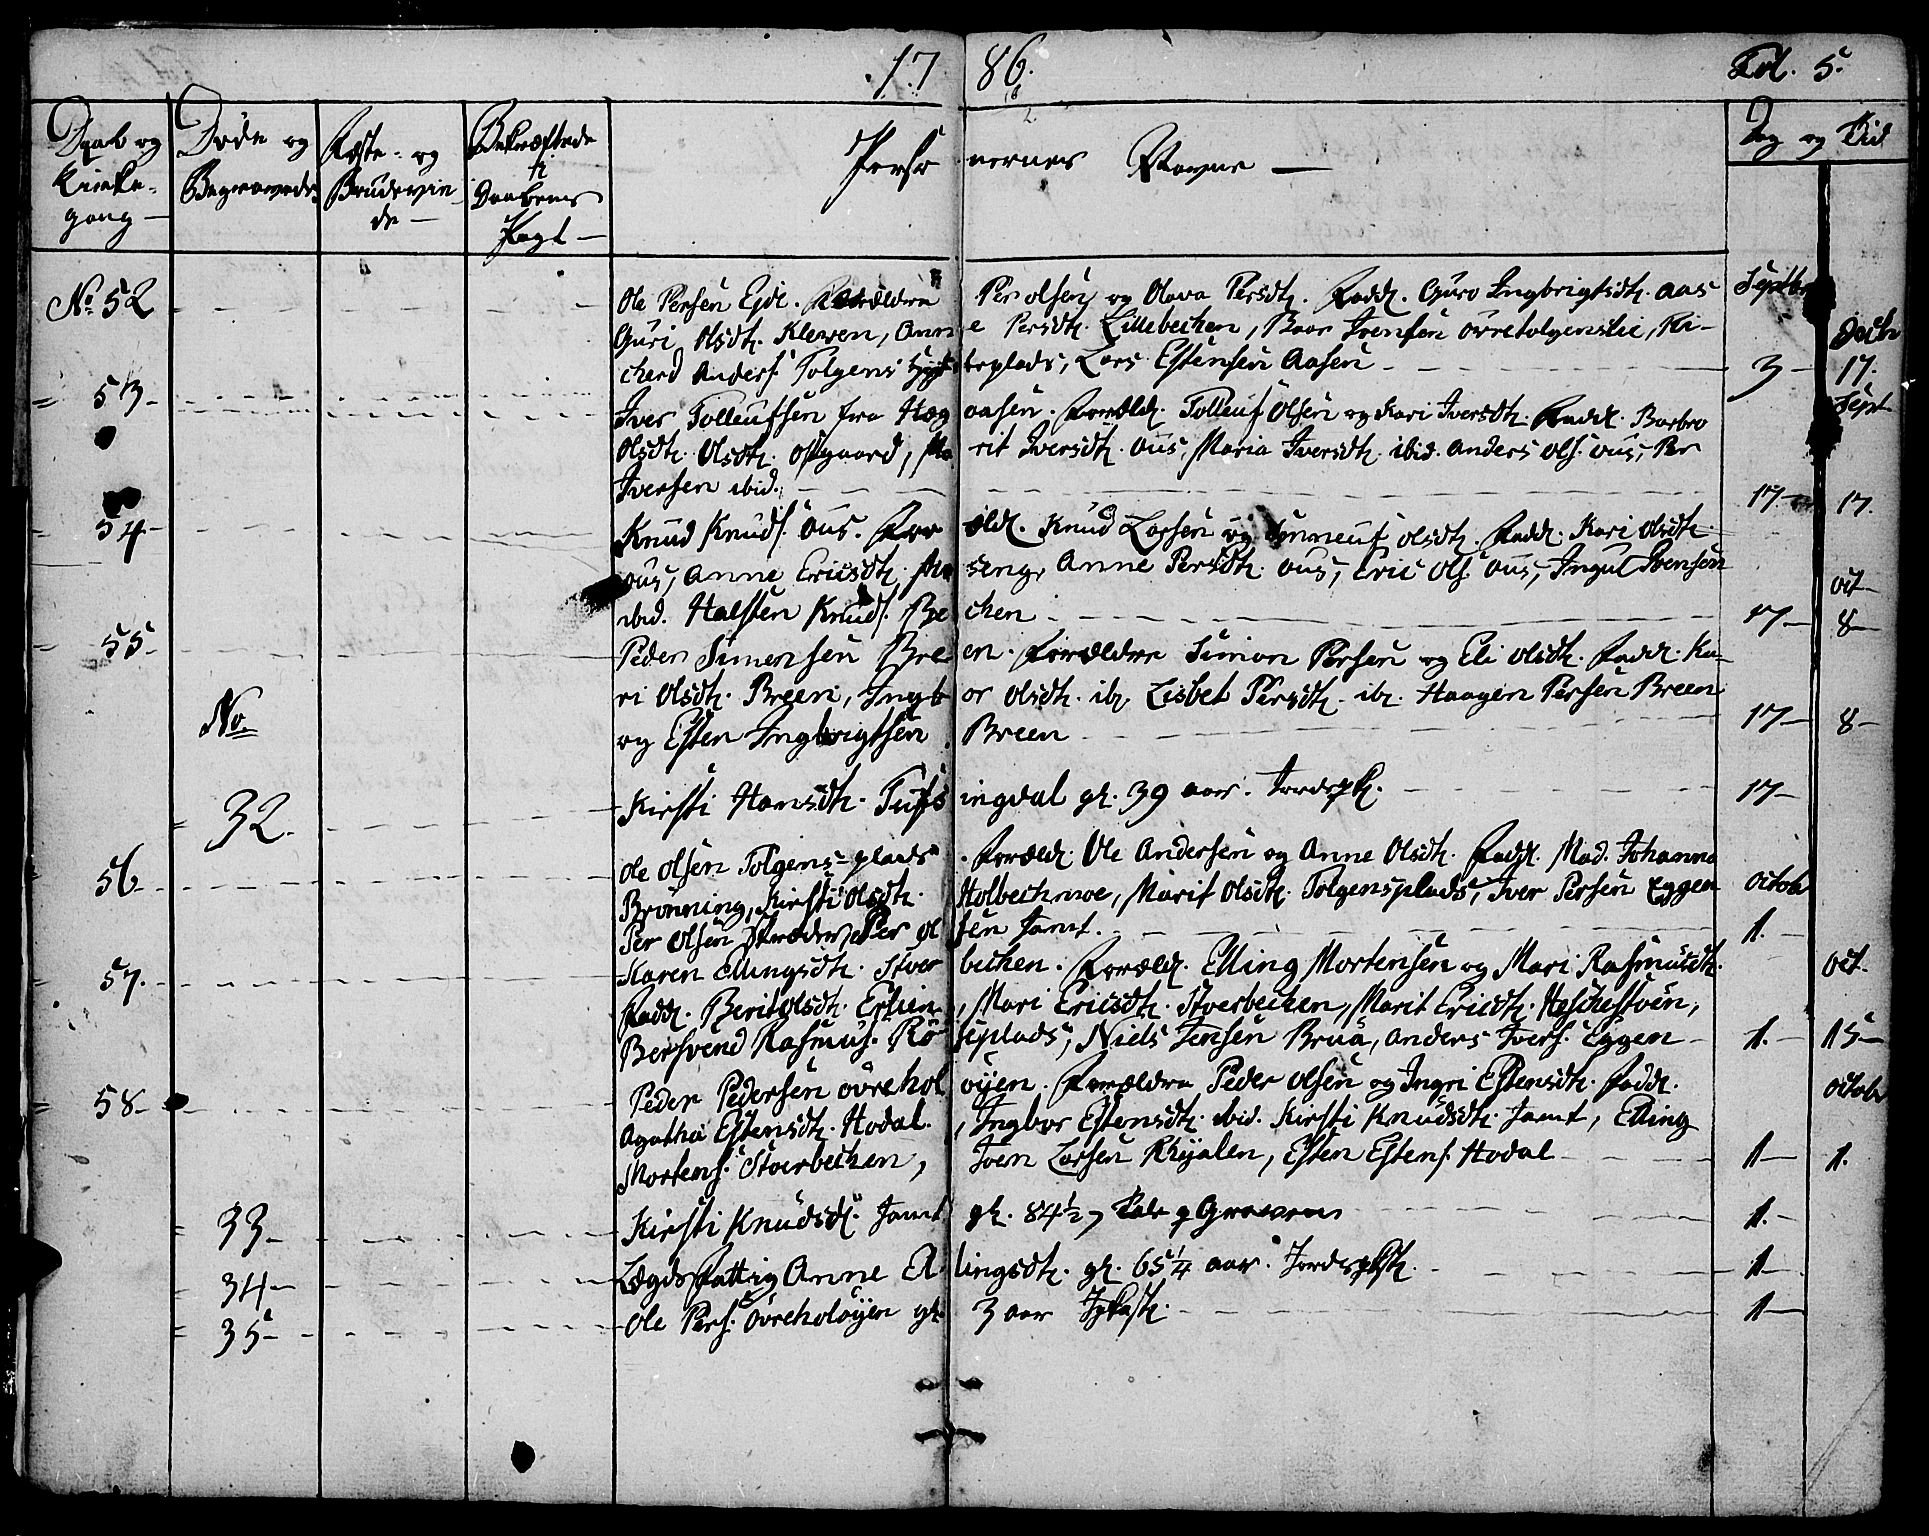 1786. Fol. 5.
Daab og Kirke- gang — Døde og Begravede. Fæste- og Brudevin- de — Bekræftede i Daabens Pagt — Personernes Navne — Dag og Tid
No. 52 Ole Persen Eide. Forældre Per olsen og Olava Persdtr. Fadd. Guro Ingbrigtsdtr. aas Septbr
Guri Olsdtr. Kleven, Anne Persdtr. Lillebechen, Baar Ivensen övretolgenslie, Ri- Octbr
cherd Anders. Tolgens Hyttesplads, Lars Estensen Aasen 3 17.
53 Iver Tolleufsen fra Hægaasen. Forældr. Tolleuf Olsen og Kari Iversdtr. Fadd. Barbro Sept.
Olsdtr. Olsdtr. Osgaard, Marit Iversdtr. ous, Maria Iversdtr. ibid. Anders ols. ous, Per
Iversen ibid. 17 17.
54 Knud Knuds. ous. Forældr. Knud Larsen og Sunneuf olsdtr. Fadd. Kari Olsdtr.
ous, Anne Ericsdtr. Moseng, Anne Persdtr. ous, Eric Ols. ous, Ingul Svensen oct
ibid. Halsten Knuds. Bechen 17 8
55 Peder Simensen Breen. Forældre Simon Persen og Eli olsdtr. Fadd. Ka-
ri Olsdtr. Breen, Ingbor olsdtr. ib. Lisbet Persdtr. ib. Haagen Persen Breen
No. og Esten Ingbrigtsen Breen 17 8
32. Kirsti Hansdtr. Tufsingdal gl. 39 aar. Jordspk. 17
56 Ole olsen Tolgens-plads. Forældr. Ole Andersen og Anne Olsdtr. Fadd. Mad. Johanna
Brönning, Kirsti Olsdtr. Holbechmoe, Marit Olsdtr. Tolgensplads, Iver Persen Eggen octobr
Per Olsen Per olsen Jamt. 1.
57. Karen Ellingsdtr. Stverbechen. Forældr. Elling Mortensen og Mari Rasmusdtr. oct.
Fadd. Berit olsdtr. Erlien, Mari Ericsdtr. Stverbechen, Marit Ericsdtr.
Bersvend Rasmus. Rösteplads, Niels Jensen Brua, Anders Ivers. Eggen 1. 15
58 Peder Pedersen övreholöyen. Forældre Peder olsen og Ingri Estensdtr. Fadd. octobr
Agatha Estensdtr. Hodal, Ingbor Estensdtr. ibid. Kirsti Knudsdtr. Jamt, Elling
Mortens. Stverbechen, Iven Larsen Röyalen, Esten Estens. Hodal 1 1.
33 Kirsti Knudsdtr. Jamt gl. 84½, 1.
34 Lægds Fattig Anne Ellingsdtr. gl. 65¼ aar. 1
35 Ole Pers. övreholöyen gl. 3 aar 1